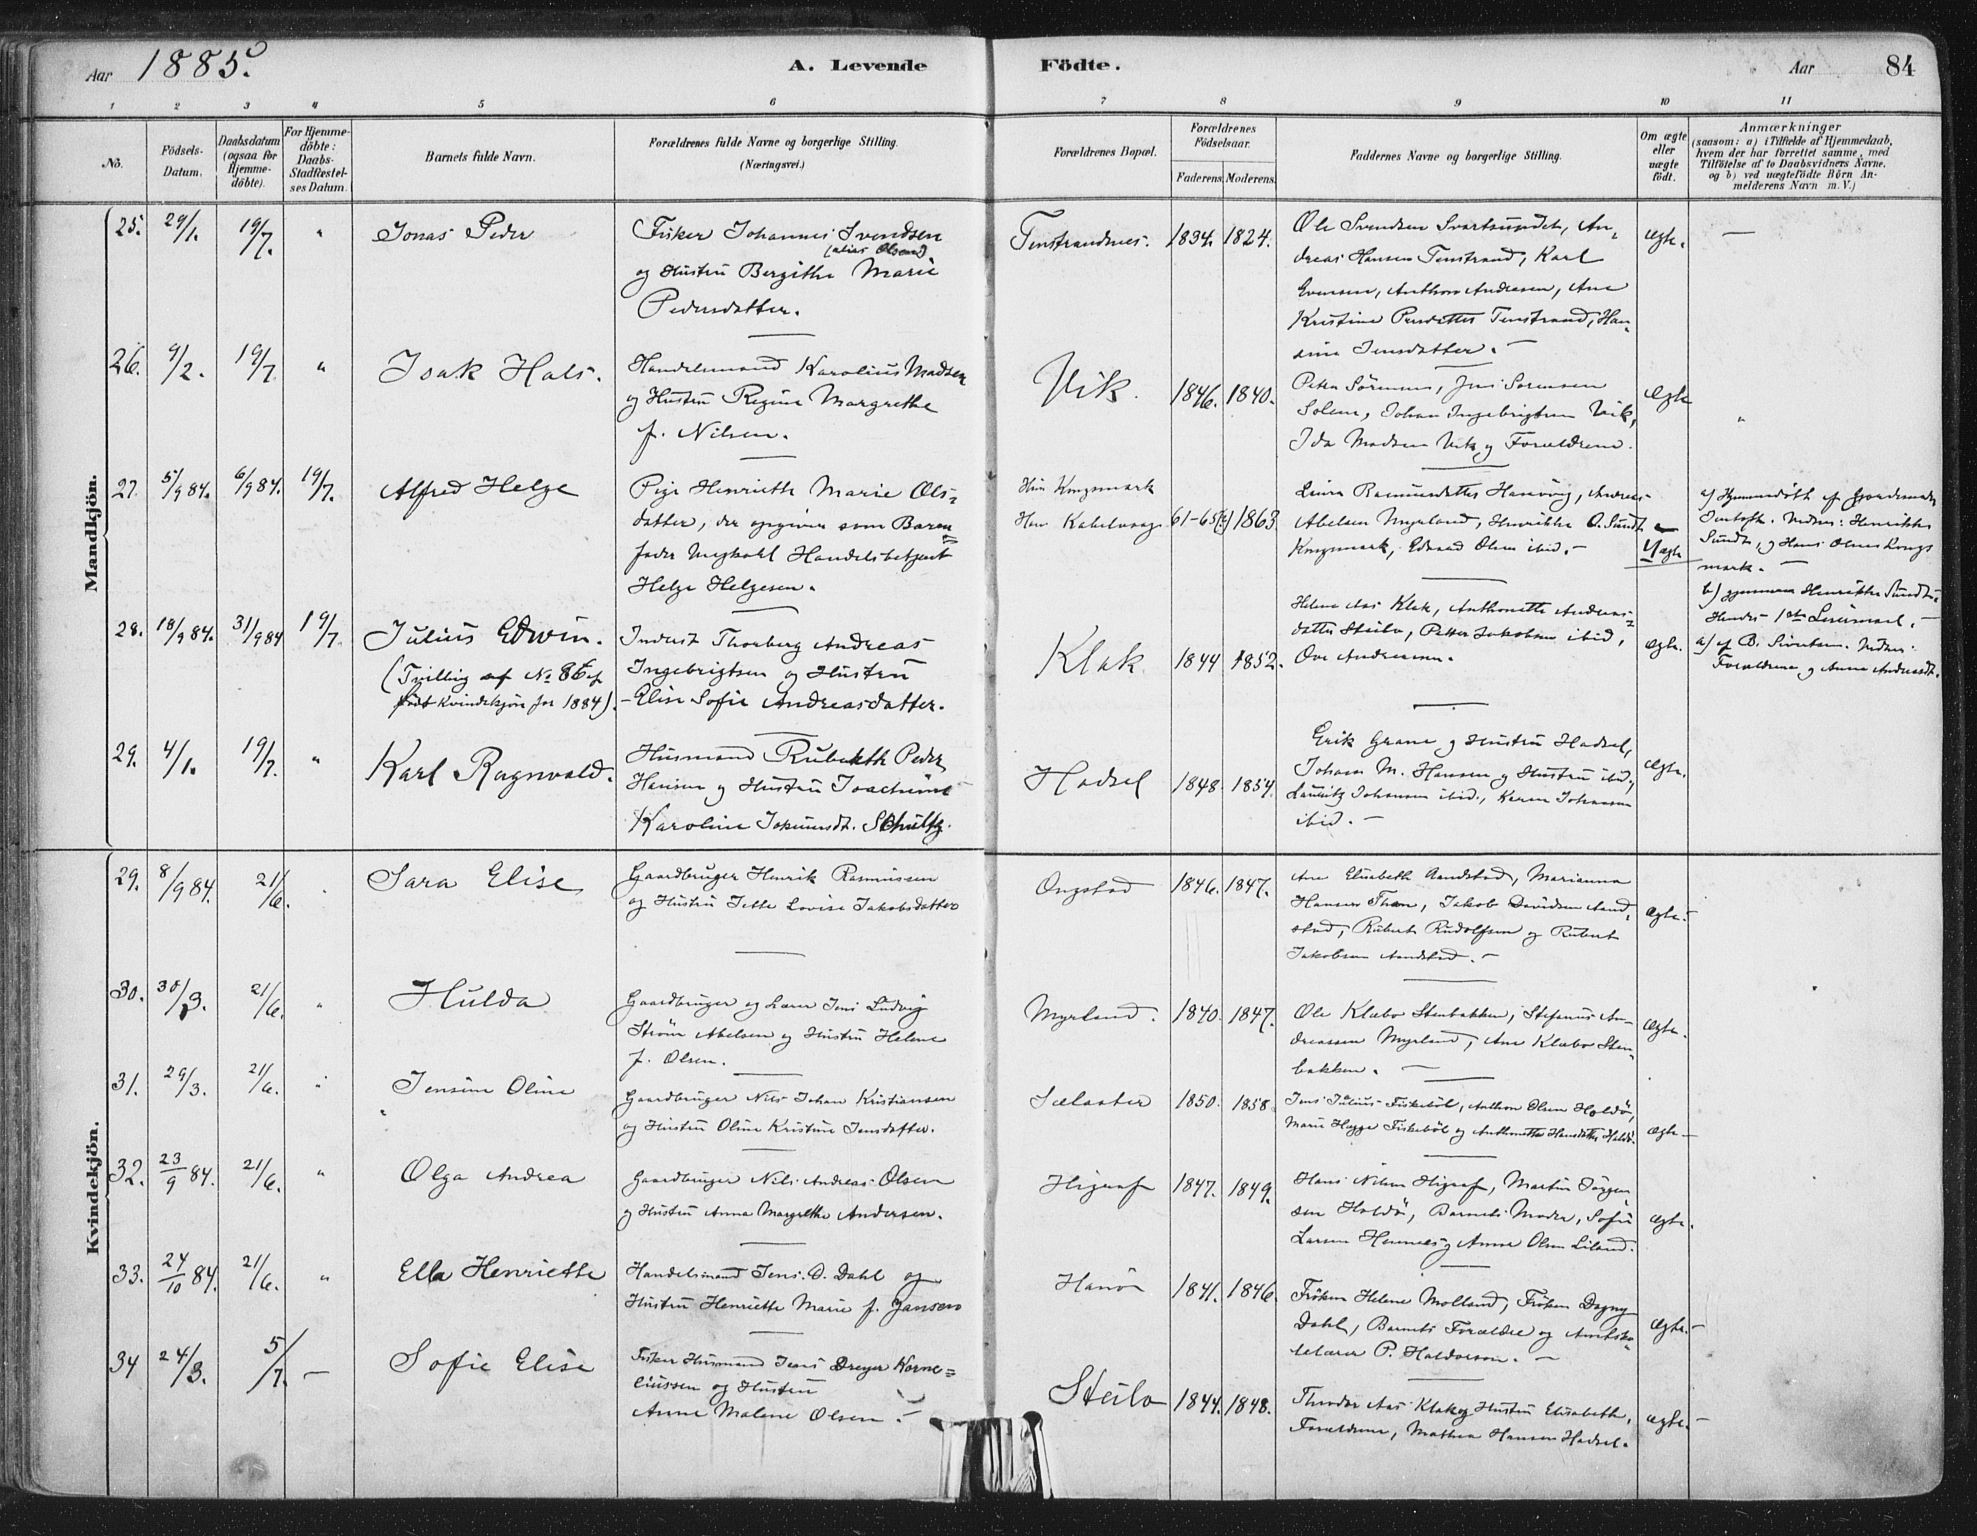 Aar 1885.
A. Levende Födte.
Aar 84
1 2 3 4 5 6 7 8 9 10 11
No.
Födsels-Datum.
Daabsdatum (ogsaa for Hjemme-döbte).
For Hjemme-döbte: Daabs-Stadfæstel-ses Datum.
Barnets fulde Navn.
Forældrenes fulde Navne og borgerlige Stilling. (Næringsvei.)
Forældrenes Bopæl.
Forældrenes Födselsaar.
Faderens. Moderens.
Faddernes Navne og borgerlige Stilling.
Om ægte eller uægte födt.
Anmærkninger (saasom: a) i Tilfælde af Hjemmedaab, hvem der har forrettet samme, med Tilföielse af to Daabsvidners Navne, og b) ved uægtefödte Börn Anmelderens Navn m. V.)
Mandkjön.
25. 29/1. 19/7. " Jonas Peder
Fisker Johannes Svendsen
(alias Olsen)
og Hustru Bergithe Marie
Pedersdatter.
Tenstrandnes. 1834. 1824.
Ole Svendsen Svartsundet, An-
dreas Hansen Tenstrand, Karl
Evensen, Anthon Andresen, Ane
Kristine Tenstrand, Han-
sine Jensdatter.
ægte. —
26. 9/2. 19/7 " Isak Hals.
Handelsmand Karolius Madsen
og Hustru Regine Margrethe
f. Nilsen.
Vik. 1846. 1840.
Peter Sörensen, Jens Sörensen
Solem, Johan Ingebrigtsen Vik,
Ida Madsen Vik og Forældrene.
ægte "
27. 5/9 84. 6/9 84. 19/7. Alfred Helge
Pige Henriette Marie Ols-
datter, der opgiver som Barne-
fader Handelsbetjent
Helge Helgesen.
Hun Kongsmark
Han Kabelvaag 61-65(?) 1863
Laura Rasmusdatter Hanvig, Andreas
Abelsen Myrland, Henrikke O. Sundt
Kongsmark, Edvard Olsen ibid.
Uægte
a) Hjemmedöbt af
Vidner: Henrikke
Sundt, og Hans Olsen Kongs
mark. —
b) gjennem Henrikke Sundt
1ste Leiermaal.
28. 18/9 84. 31/9 84 19/7. Julius Edwin.
(Tvilling af No 86 af
födt Kvindekjön for 1884).
Inderst Thorberg Andreas
Ingebrigtsen og Hustru
Elise Sofie Andreasdatter.
Klak 1844 1852.
Helene Aas Klak, Anthonette Andreas-
datter Steilo, Petter Jakobsen ibid,
Ove Andreassen.
ægte.
a) af B. Sivertsen. Vidner:
Forældrene og Anne Andreasdt.
29. 4/1. 19/7. " Karl Ragnvald.
Husmand Peder
Hansen og Hustru Joachime
Karoline Schultz.
Hadsel 1848. 1854.
Erik Grane og Hustru Hadsel,
Johan M. Hansen og Hustru ibid,
Lauritz Johansen ibid., Karen Johansen
ibid. —
ægte.
Kvindekjön.
29. 8/9 84. 21/6. Sara Elise
Gaardbruger Henrik Rasmussen
og Hustru Jette Lovise Jakobsdatter
Ongstad 1846. 1847.
Ane Elisabeth Aandstad, Marianna
Hansen Thon, Jakob Davidsen Aand-
stad, Rubert Rudolfsen og Rubert
Jakobsen Aandstad. —
ægte.
30. 30/3. 21/6. " Hulda
Gaardbruger og Lærer Jens Ludvig
Ström Abelsen og Hustru Helene
f. Olsen.
Myrland. 1840. 1847.
Ole Klæbo Stenbakken, Stefanus An-
dreassen Myrland, Ane Klæbo Sten-
bakken. —
ægte.
31. 29/3. 21/6. " Jensine Oline
Gaardbruger Nils Johan Kristiansen
og Hustru Oline Kristine Jensdatter.
1850. 1858.
Jens Julius Fiskeböl, Anthon Olsen Holdö,
Marie Hygge Fiskeböl og Anthonette Hansdatter Holdö.
ægte —
32. 23/9 84. 21/6. " Olga Andrea
Gaardbruger Nils Andreas Olsen
og Hustru Anna Margrethe Andersen.
Higraf 1847. 1849.
Hans Nilsen Higraf, Martin Jörgen-
sen Holdö, Barnets Moder, Sofie
Larsen Hennes og Anne Olsen Liland.
ægte.
33. 24/10 84. 21/6. " Ella Henriette
Handelsmand Jens. D. Dahl og
Hustru Henriette Marie f. Jansen
Hanö 1841. 1846.
Fröken Helene Molland, Fröken Dagny
Dahl, Barnets Forældre og
P. Halvorsen. —
ægte. —
34 24/3. 5/7. — Sofie Elise
Fisker Husmand Jens Dreyer Korne-
liussen og Hustru
Anne Malene Olsen. —
Steilo 1844. 1848.
Theodor Aas Klak og Hustru Elisabeth,
Forældrene, Mathea Hansen Hadsel.
ægte. —